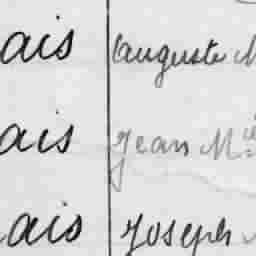 ais Auguste M
ais Jean Mie
ais Joseph